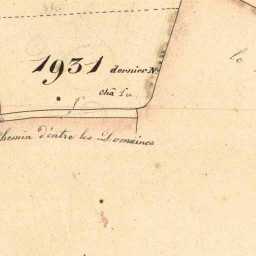 1931 dernier N°
Chemin d'entre les Domaines